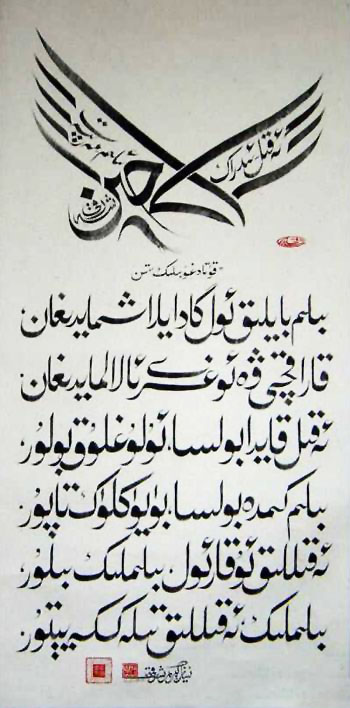 ئەقىل ئىدراك
«قۇتادغۇ بىلىك» تىن
بىلىم بايلىق ئول گادايلاشمايدىغان
قاراقچى ۋە ئوغرى ئالالمايدىغان
ئەقىل قايدا بولسا، ئۇلۇغلۇق بولۇر،
بىلىم كىمدە بولسا، بۈيۈكلۈك تاپۇر.
ئەقىللىق ئۇقار ئول، بىلىملىك بىلۇر،
بىلىملىك ئەقىللىق تىلەككە يېتۇر.